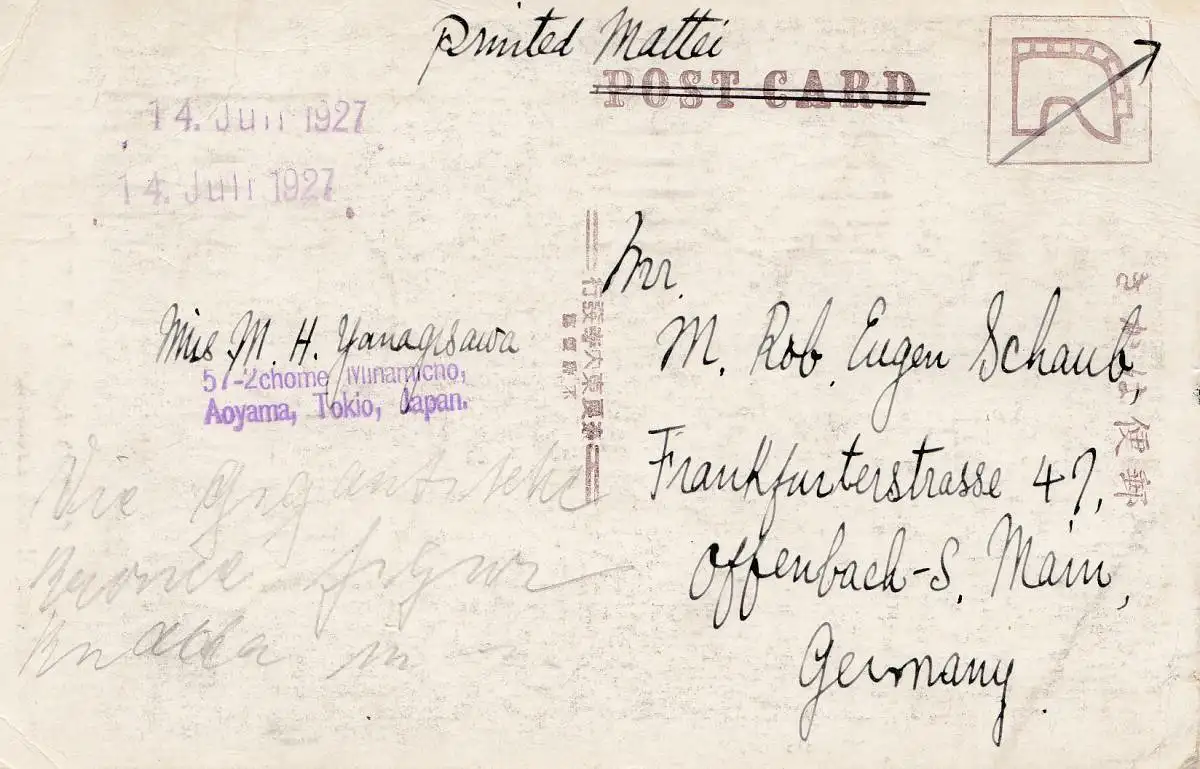 Printed Matter
POST CARD
14. Juli 1927
14. Juli 1927
Miss M. H. Yanagisawa
57-2chome Minamicho,
Aoyama, Tokio, Japan.
Die Gigantische
Bronce Figur
Buddha in
Mr.
M. Rob. Eugen Schaub,
Frankfurterstrasse 47,
Offenbach-S. Main,
Germany.
きかは便郵